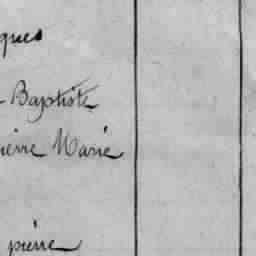 ques
Baptiste
ierre Marie
pierre